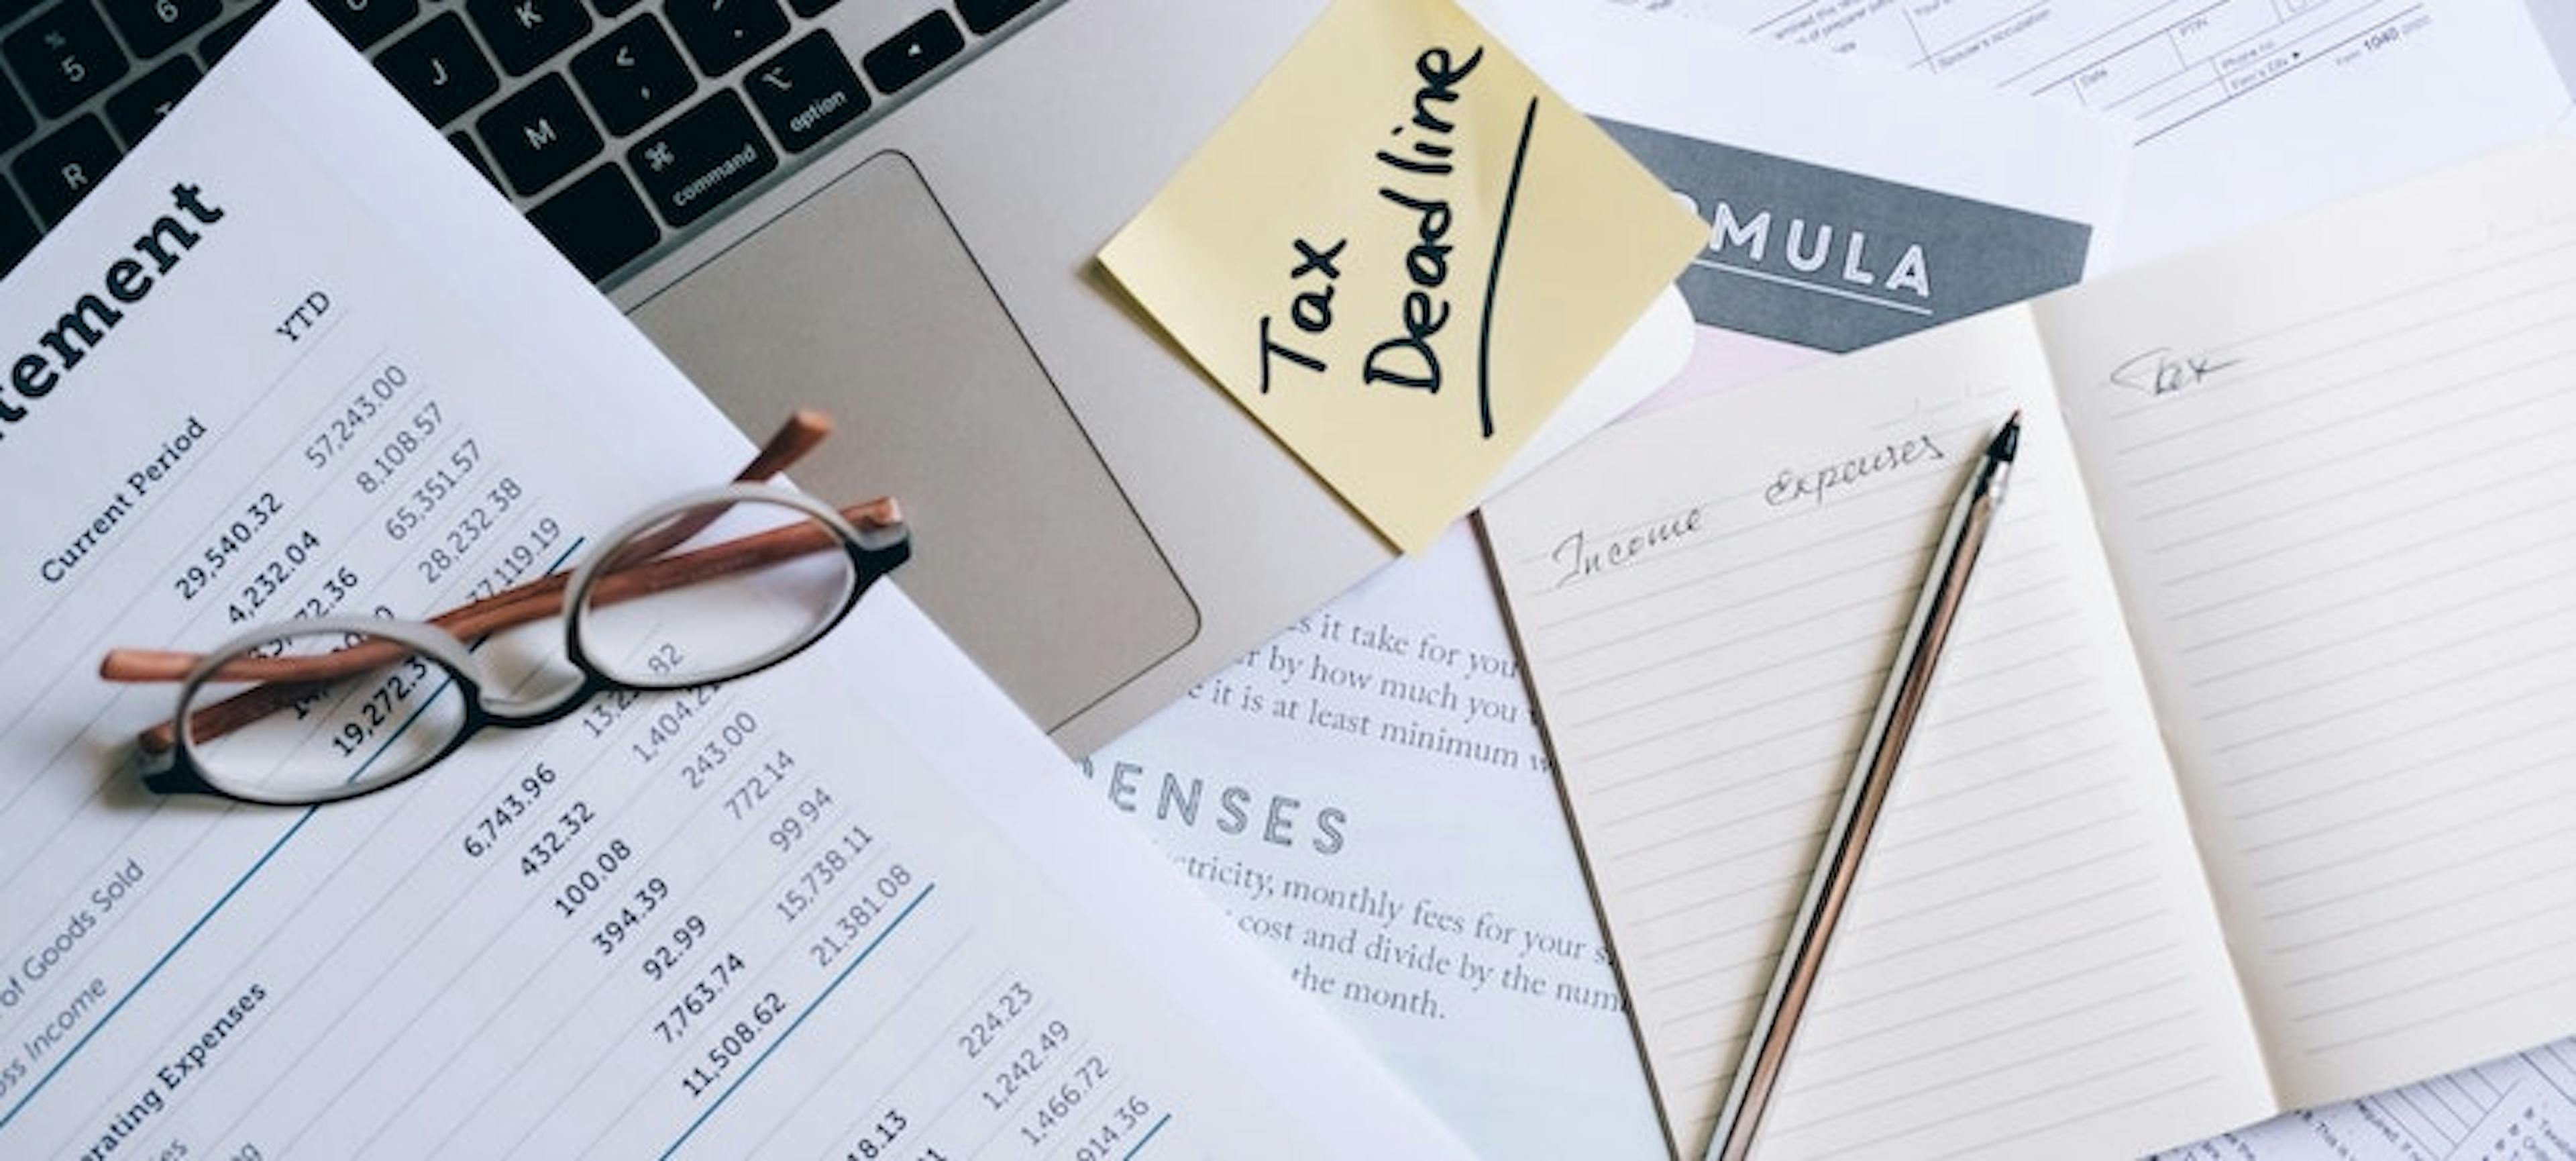 5
6
R
J
K
M
<
,
⌘
command
⌥
option
tement
YTD
Current Period
29,540.32 57,243.00
4,232.04 8,108.57
72.36 65,351.57
28,232.38
19,272.3 37,119.19
of Goods Sold
oss Income
erating Expenses
6,743.96 82
432.32 1,404.2
100.08 243.00
394.39 772.14
92.99 99.94
7,763.74 15,738.11
11,508.62 21,381.08
224.23
18.13 1,242.49
1,466.72
914.36
Tax
Deadline
MULA
it take for you
by how much you
it is at least minimum
ENSES
ctricity, monthly fees for your s
cost and divide by the num
the month.
Income Expenses
Tax
Date
PTIN
Phone no.
Firm's EIN ▸
Form 1040